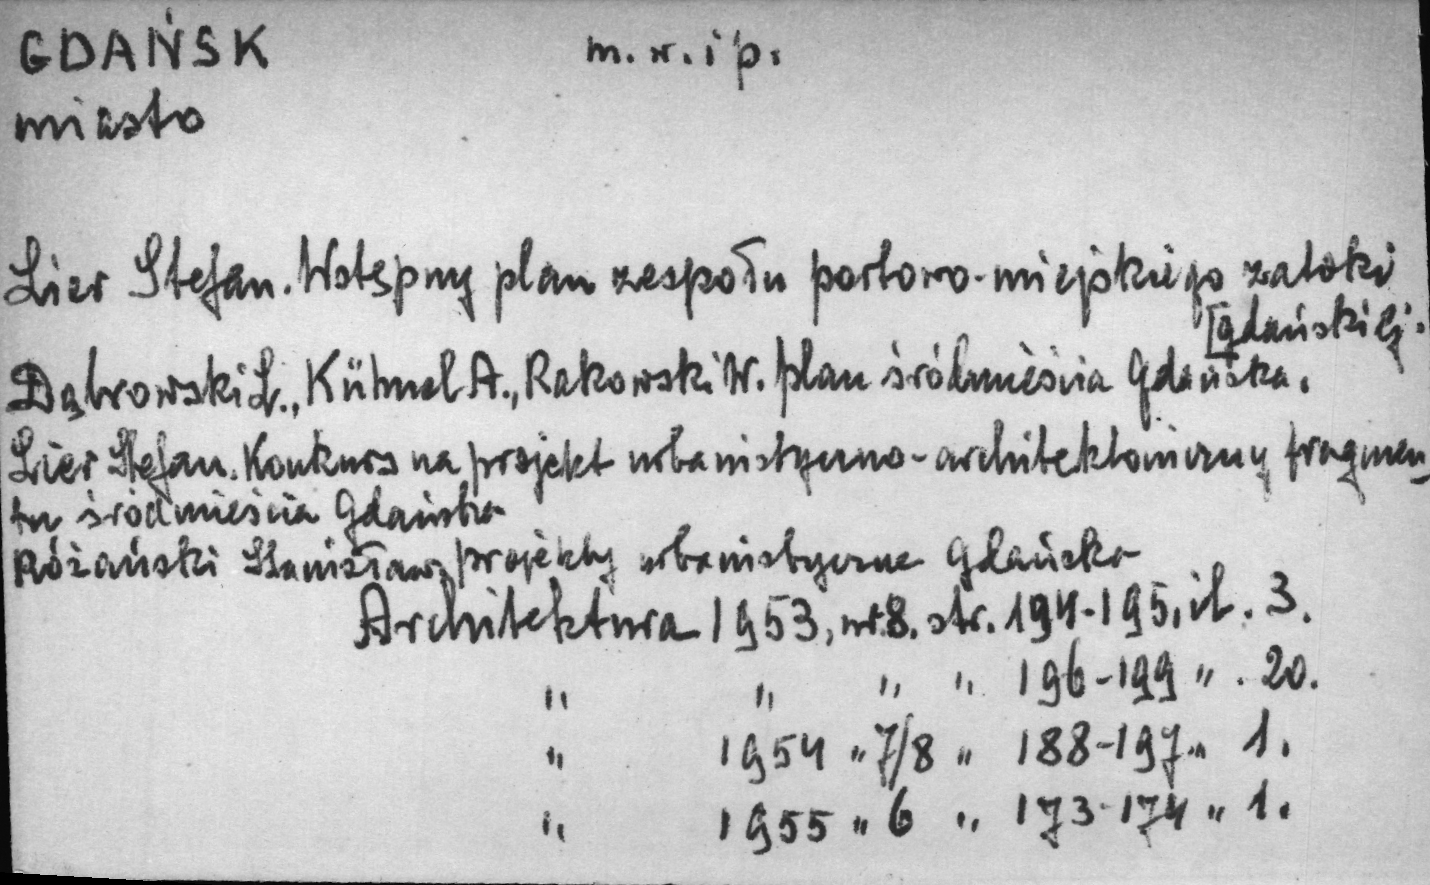 GDAŃSK m. w. i p.
miasto
Lier Stefan. Wstępny plan zespołu portowo-miejskiego zatoki
[gdańskiej.
Dąbrowski L., Kühnel A., Rakowski W. plan śródmieścia Gdańska.
Lier Stefan. Konkurs na projekt urbanistyczno-architektoniczny fragmen-
tu śródmieścia Gdańska
Różański Stanisław, projekty urbanistyczne Gdańska
Architektura 1953, nr. 8. str. 194-195, il. 3.
" " " " 196-199 " . 20.
" 1954 " 7/8 " 188-197 " 1.
" 1955 " 6 " 173-174 " 1.